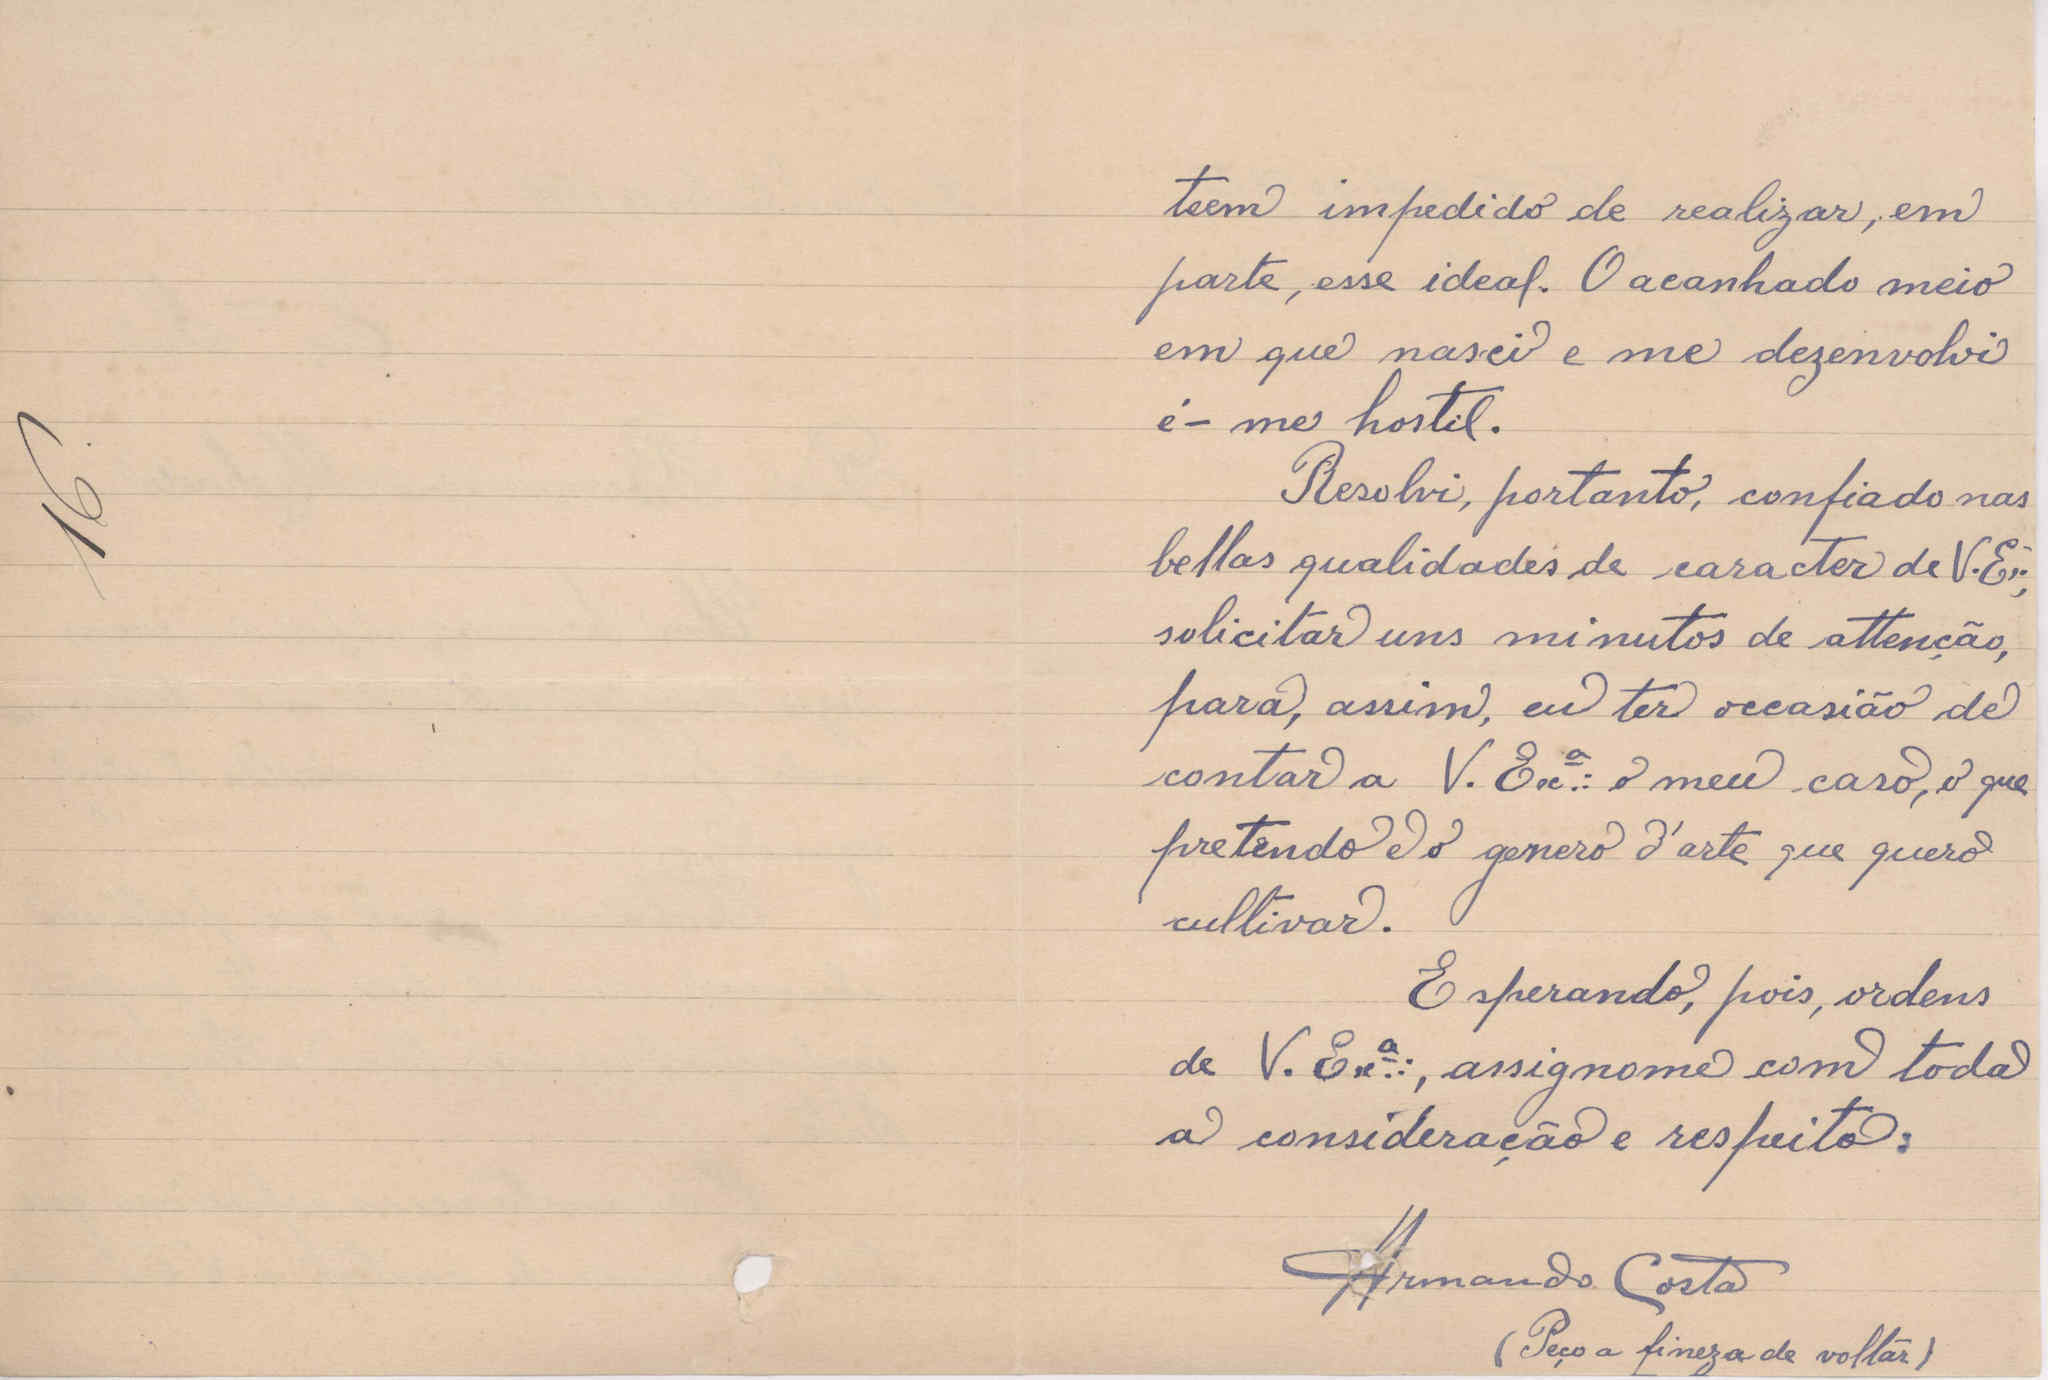 16
teem impedido de realizar, em
parte, esse ideal. O acanhado meio
em que nasci e me dezenvolvi
é-me hostil.
Resolvi, portanto, confiado nas
bellas qualidades de caracter de V. Exª.,
solicitar uns minutos de attenção,
para, assim, eu ter occasião de
contar a V. Exª.: o meu caso, o que
pretendo e o genero d'arte que quero
cultivar.
Esperando, pois, ordens
de V. Exª.:, assignome com toda
a consideração e respeito:
Armando Costa
(Peço a fineza de voltar)